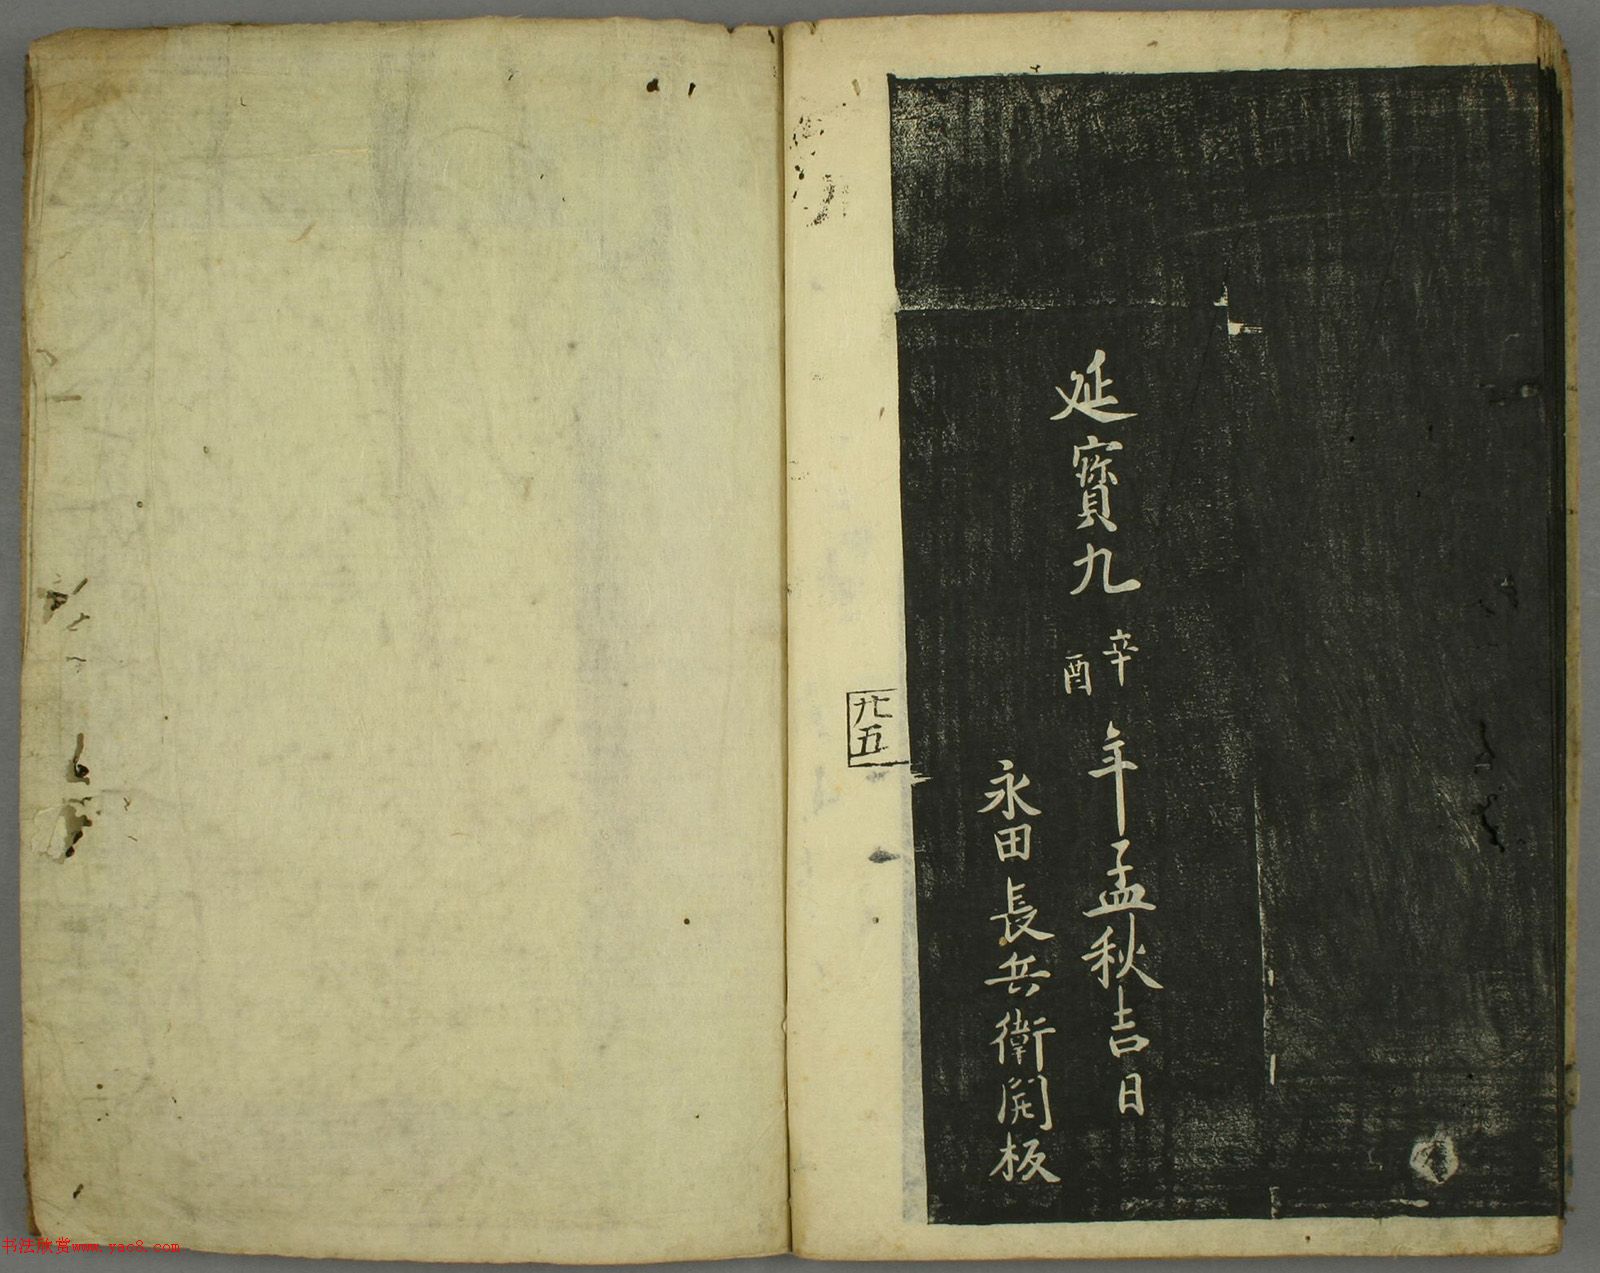 延寳九辛酉年孟秋吉日
永田長兵衛開板
廿五
书法欣赏www.yac8.com